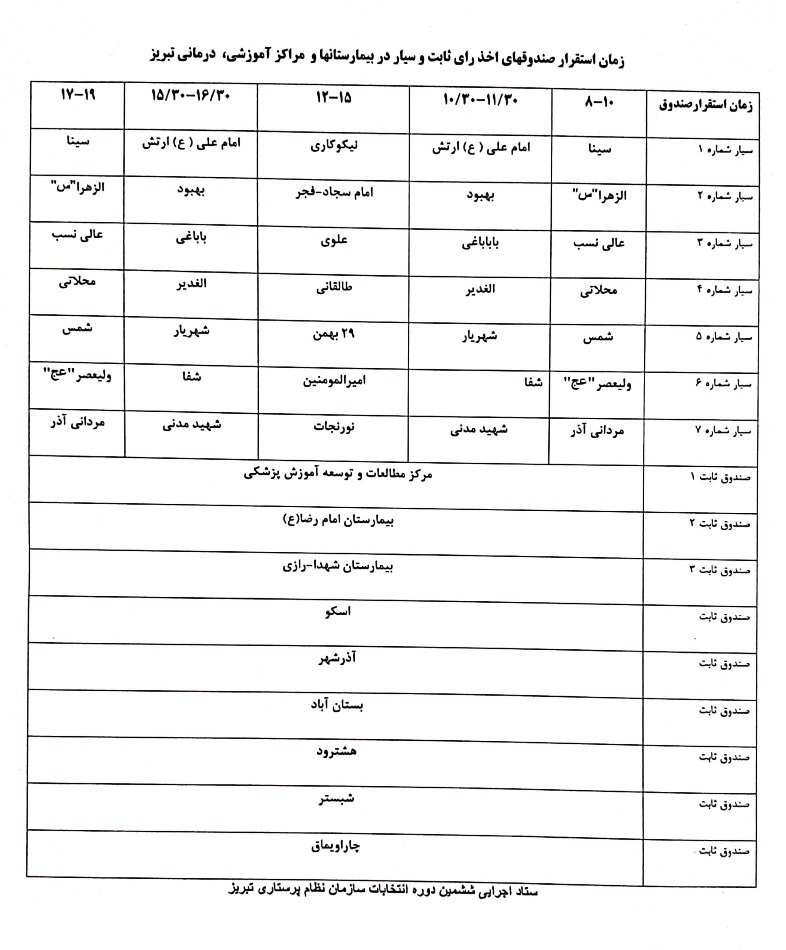 زمان استقرار صندوقهای اخذ رای ثابت و سیار در بیمارستانها و مراکز آموزشی، درمانی تبریز
زمان استقرارصندوق ۸-۱۰ ۱۰/۳۰-۱۱/۳۰ ۱۲-۱۵ ۱۵/۳۰-۱۶/۳۰ ۱۷-۱۹
سیار شماره ۱ سینا امام علی ( ع) ارتش نیکوکاری امام علی ( ع) ارتش سینا
سیار شماره ۲ الزهرا"س" بهبود امام سجاد-فجر بهبود الزهرا"س"
سیار شماره ۳ عالی نسب باباباغی علوی باباغی عالی نسب
سیار شماره ۴ محلاتی الغدیر طالقانی الغدیر محلاتی
سیار شماره ۵ شمس شهریار ۲۹ بهمن شهریار شمس
سیار شماره ۶ ولیعصر"عج" شفا امیرالمومنین شفا ولیعصر"عج"
سیار شماره ۷ مردانی آذر شهید مدنی نورنجات شهید مدنی مردانی آذر
صندوق ثابت ۱ مرکز مطالعات و توسعه آموزش پزشکی
صندوق ثابت ۲ بیمارستان امام رضا(ع)
صندوق ثابت ۳ بیمارستان شهدا-رازی
صندوق ثابت اسکو
صندوق ثابت آذرشهر
صندوق ثابت بستان آباد
صندوق ثابت هشترود
صندوق ثابت شبستر
صندوق ثابت چاراویماق
ستاد اجرایی ششمین دوره انتخابات سازمان نظام پرستاری تبریز